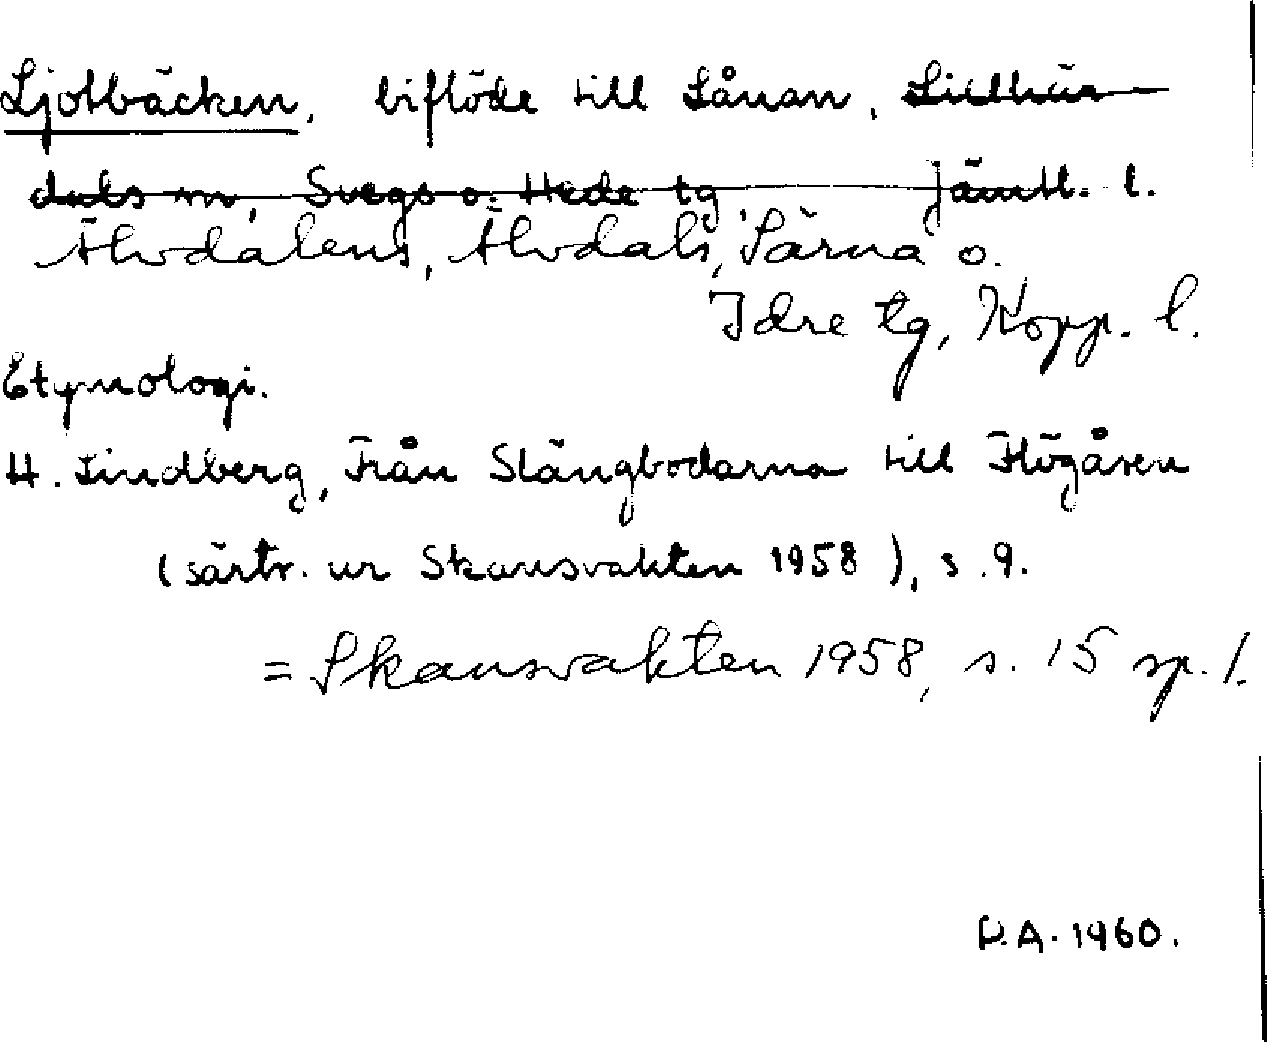 Ljotbäcken, biflöde till Lånan, Lillhär-
dals sn, Svegs o. Hede tg Jämtl. l.
Älvdalens, Älvdals, Särna o.
Idre tg, Kopp. l.
Etymologi.
H. Lindberg, Från Slängbodarna till Högåsen
(särtr. ur Skansvakten 1958), s. 9.
= Skansvakten 1958, s. 15 sp. 1.
D.A. 1960.